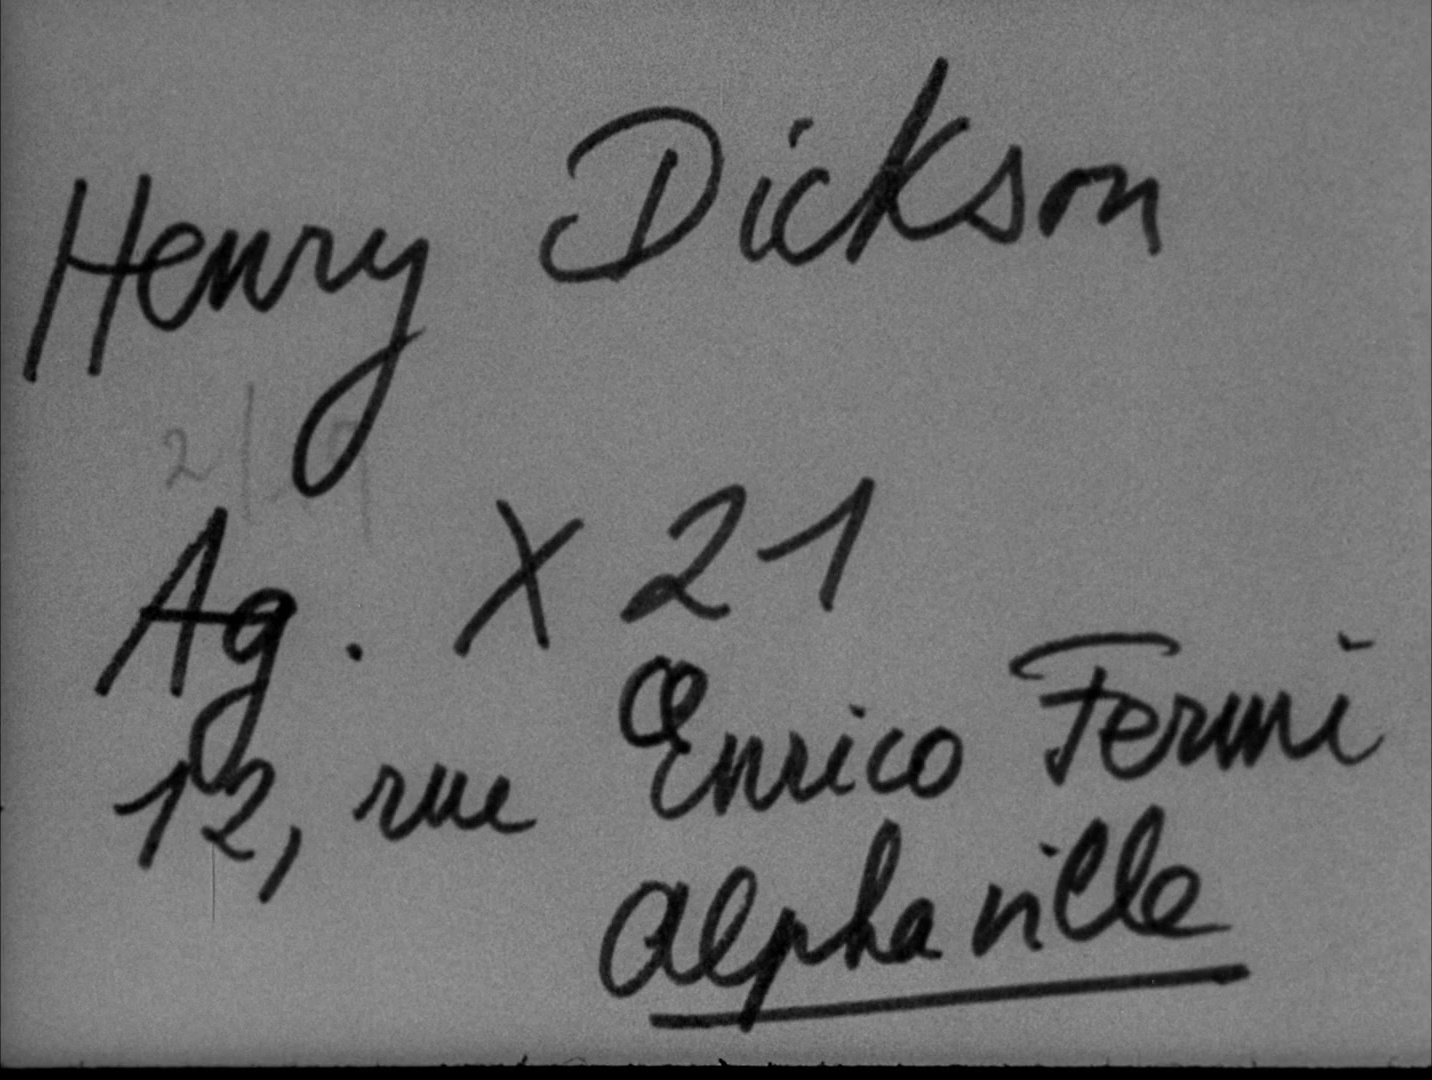 Henry Dickson
Ag. X21
12, rue Enrico Fermi
Alphaville